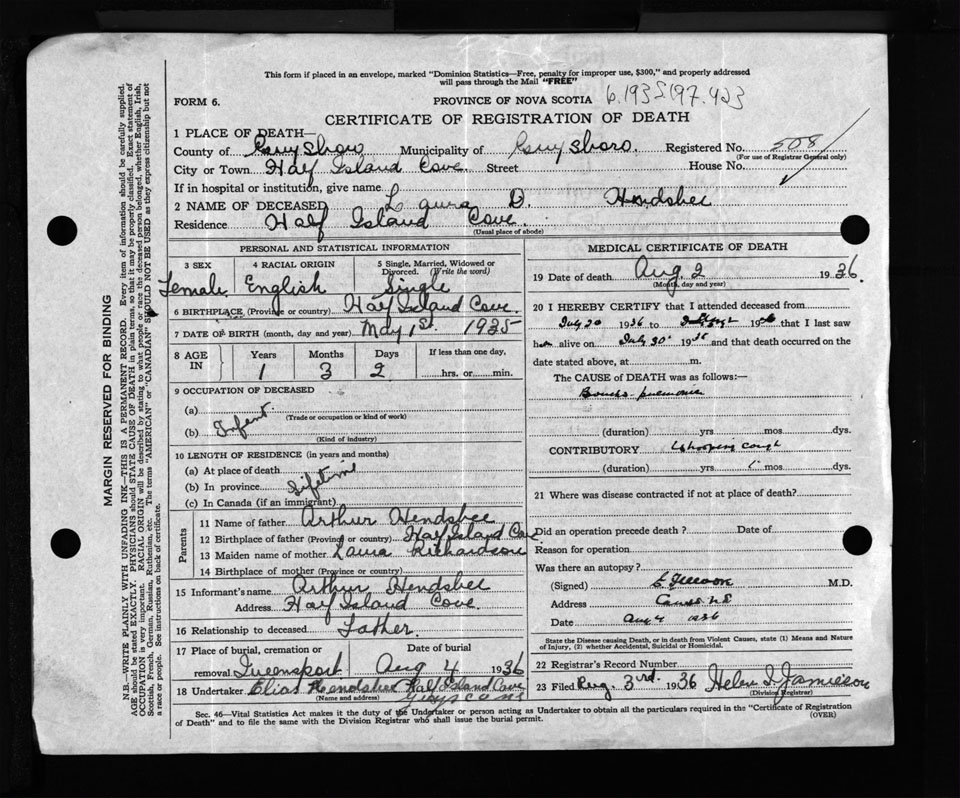 This form if placed in an envelope, marked "Dominion Statistics—Free, penalty for improper use, $300," and properly addressed
will pass through the Mail "FREE"
FORM 6.
PROVINCE OF NOVA SCOTIA
CERTIFICATE OF REGISTRATION OF DEATH
1 PLACE OF DEATH—
County of Guysboro Municipality of Guysboro. Registered No. 508
(For use of Registrar General only)
City or Town Half Island Cove. Street House No.
If in hospital or institution, give name
2 NAME OF DECEASED Laura D. Hendsbee
Residence Half Island Cove.
(Usual place of abode)
PERSONAL AND STATISTICAL INFORMATION
3 SEX 4 RACIAL ORIGIN 5 Single, Married, Widowed or Divorced. (Write the word)
Female English Single
6 BIRTHPLACE, (Province or country) Half Island Cove.
7 DATE OF BIRTH (month, day and year) May 1st. 1935
8 AGE IN Years Months Days If less than one day,
1 3 2 hrs. or min.
9 OCCUPATION OF DECEASED
(a)
(Trade or occupation or kind of work)
(b) Infant
(Kind of industry)
10 LENGTH OF RESIDENCE (in years and months)
(a) At place of death
(b) In province Lifetime
(c) In Canada (if an immigrant)
Parents
11 Name of father Arthur Hendsbee
12 Birthplace of father (Province or country) Half Island Cove
13 Maiden name of mother Laura Richardson
14 Birthplace of mother (Province or country)
15 Informant's name Arthur Hendsbee
Address Half Island Cove.
16 Relationship to deceased Father.
17 Place of burial, cremation or removal Queensport Date of burial Aug 4 1936
18 Undertaker Elias Hendsbee Half Island Cove
(Name and address) Guys Co. N.S
MEDICAL CERTIFICATE OF DEATH
19 Date of death Aug. 2 1936
(Month, day and year)
20 I HEREBY CERTIFY that I attended deceased from
July 30 1936 to 1936 that I last saw
her alive on July 30 1936 and that death occurred on the
date stated above, at m.
The CAUSE OF DEATH was as follows:—
Broncho-pneumonia
(duration) yrs mos dys.
CONTRIBUTORY Whooping Cough
(duration) yrs mos. dys.
21 Where was disease contracted if not at place of death?
Did an operation precede death? Date of
Reason for operation
Was there an autopsy?
(Signed) M.D.
Address Canso N.S
Date Aug 4 1936
State the Disease causing Death, or in death from Violent Causes, state (1) Means and Nature
of Injury, (2) whether Accidental, Suicidal or Homicidal.
22 Registrar's Record Number
23 Filed Aug. 3rd. 1936 Helen I. Jamieson
(Division Registrar)
Sec. 46—Vital Statistics Act makes it the duty of the Undertaker or person acting as Undertaker to obtain all the particulars required in the "Certificate of Registration
of Death" and to file the same with the Division Registrar who shall issue the burial permit. (OVER)
MARGIN RESERVED FOR BINDING
N.B.—WRITE PLAINLY WITH UNFADING INK—THIS IS A PERMANENT RECORD. Every item of information should be carefully supplied.
AGE should be stated EXACTLY. PHYSICIANS should STATE CAUSE OF DEATH in plain terms, so that it may be properly classified. Exact statement of
OCCUPATION is very important. RACIAL ORIGIN will be described by stating to what people or race the deceased person belonged, whether English, Irish,
Scottish, French, German, Russian, Ruthenian, etc. The terms "AMERICAN" or "CANADIAN" SHOULD NOT BE USED as they express citizenship but not
a race or people. See instructions on back of certificate.